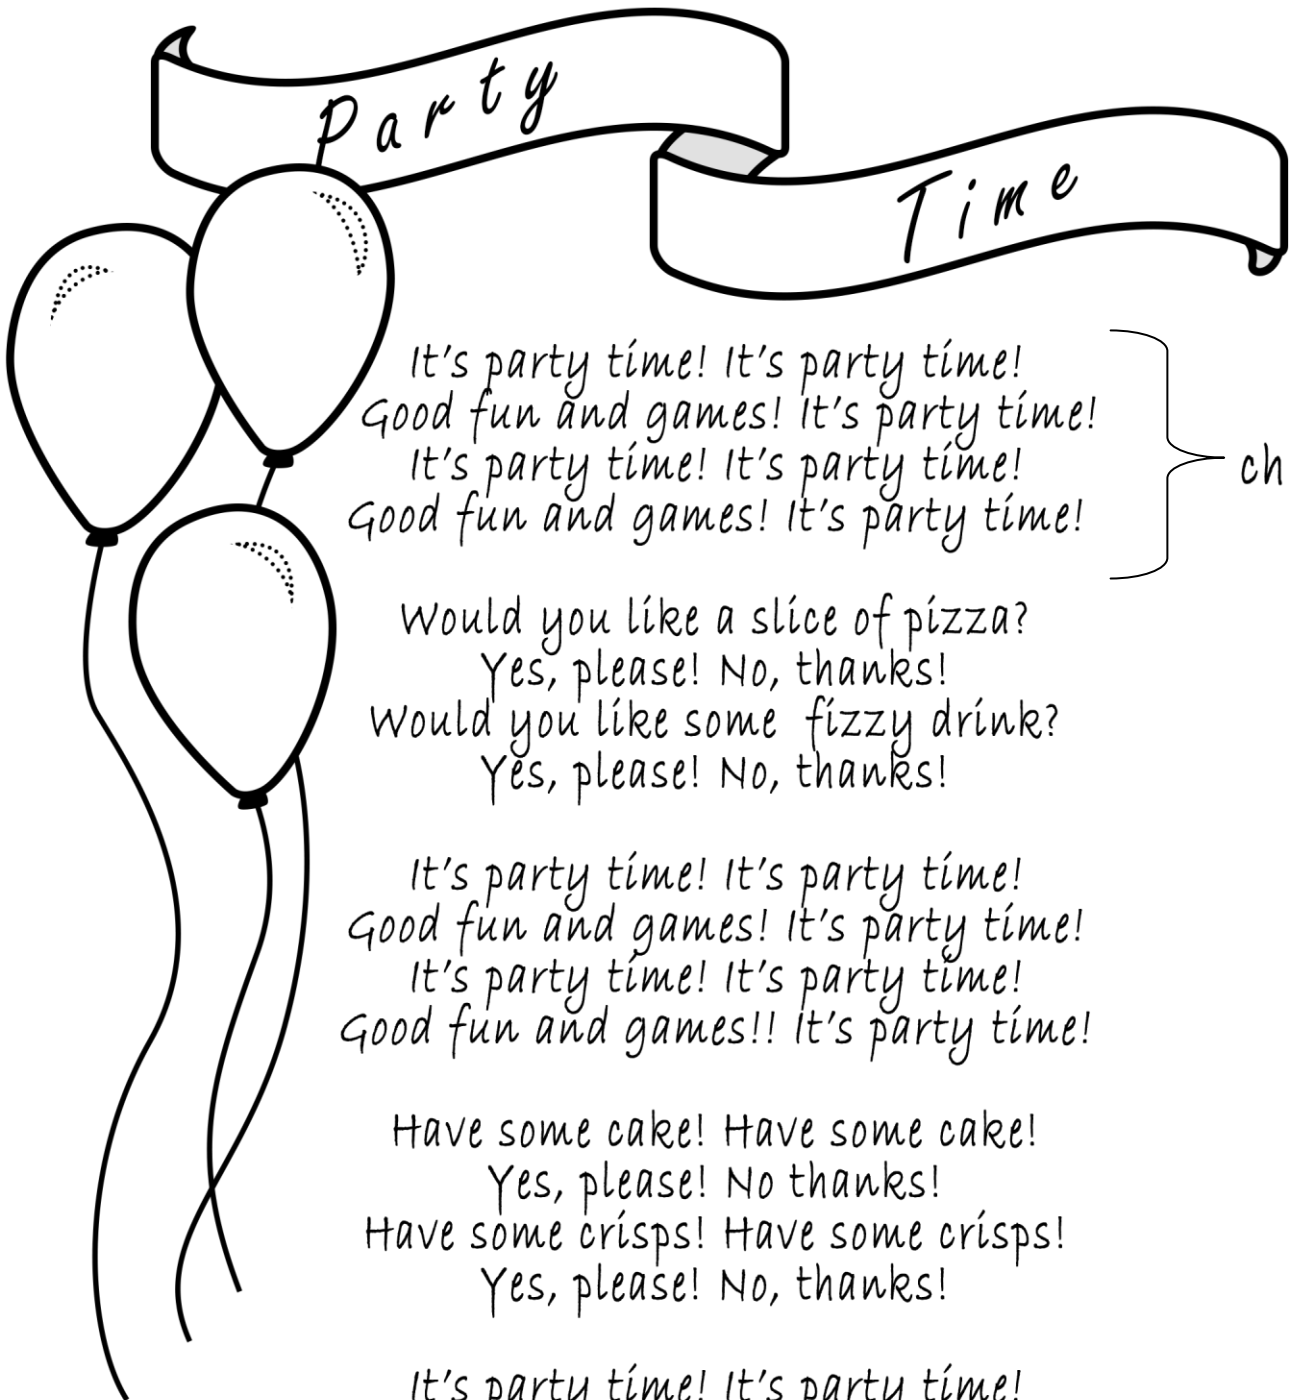 Party
Time
It's party time! It's party time!
Good fun and games! It's party time!
It's party time! It's party time!
Good fun and games! It's party time!
ch
Would you like a slice of pizza?
Yes, please! No, thanks!
Would you like some fizzy drink?
Yes, please! No, thanks!
It's party time! It's party time!
Good fun and games! It's party time!
It's party time! It's party time!
Good fun and games!! It's party time!
Have some cake! Have some cake!
Yes, please! No thanks!
Have some crisps! Have some crisps!
Yes, please! No, thanks!
It's party time! It's party time!